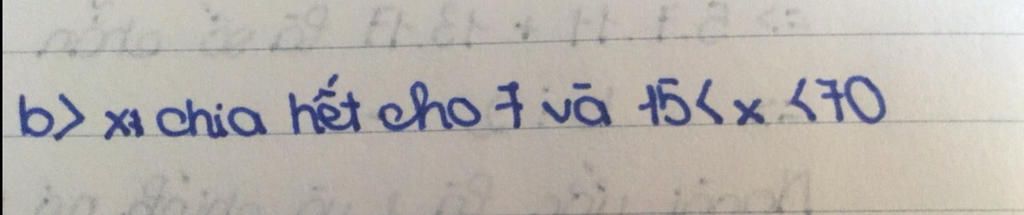 b> x chia hết cho 7 và 15 < x < 70